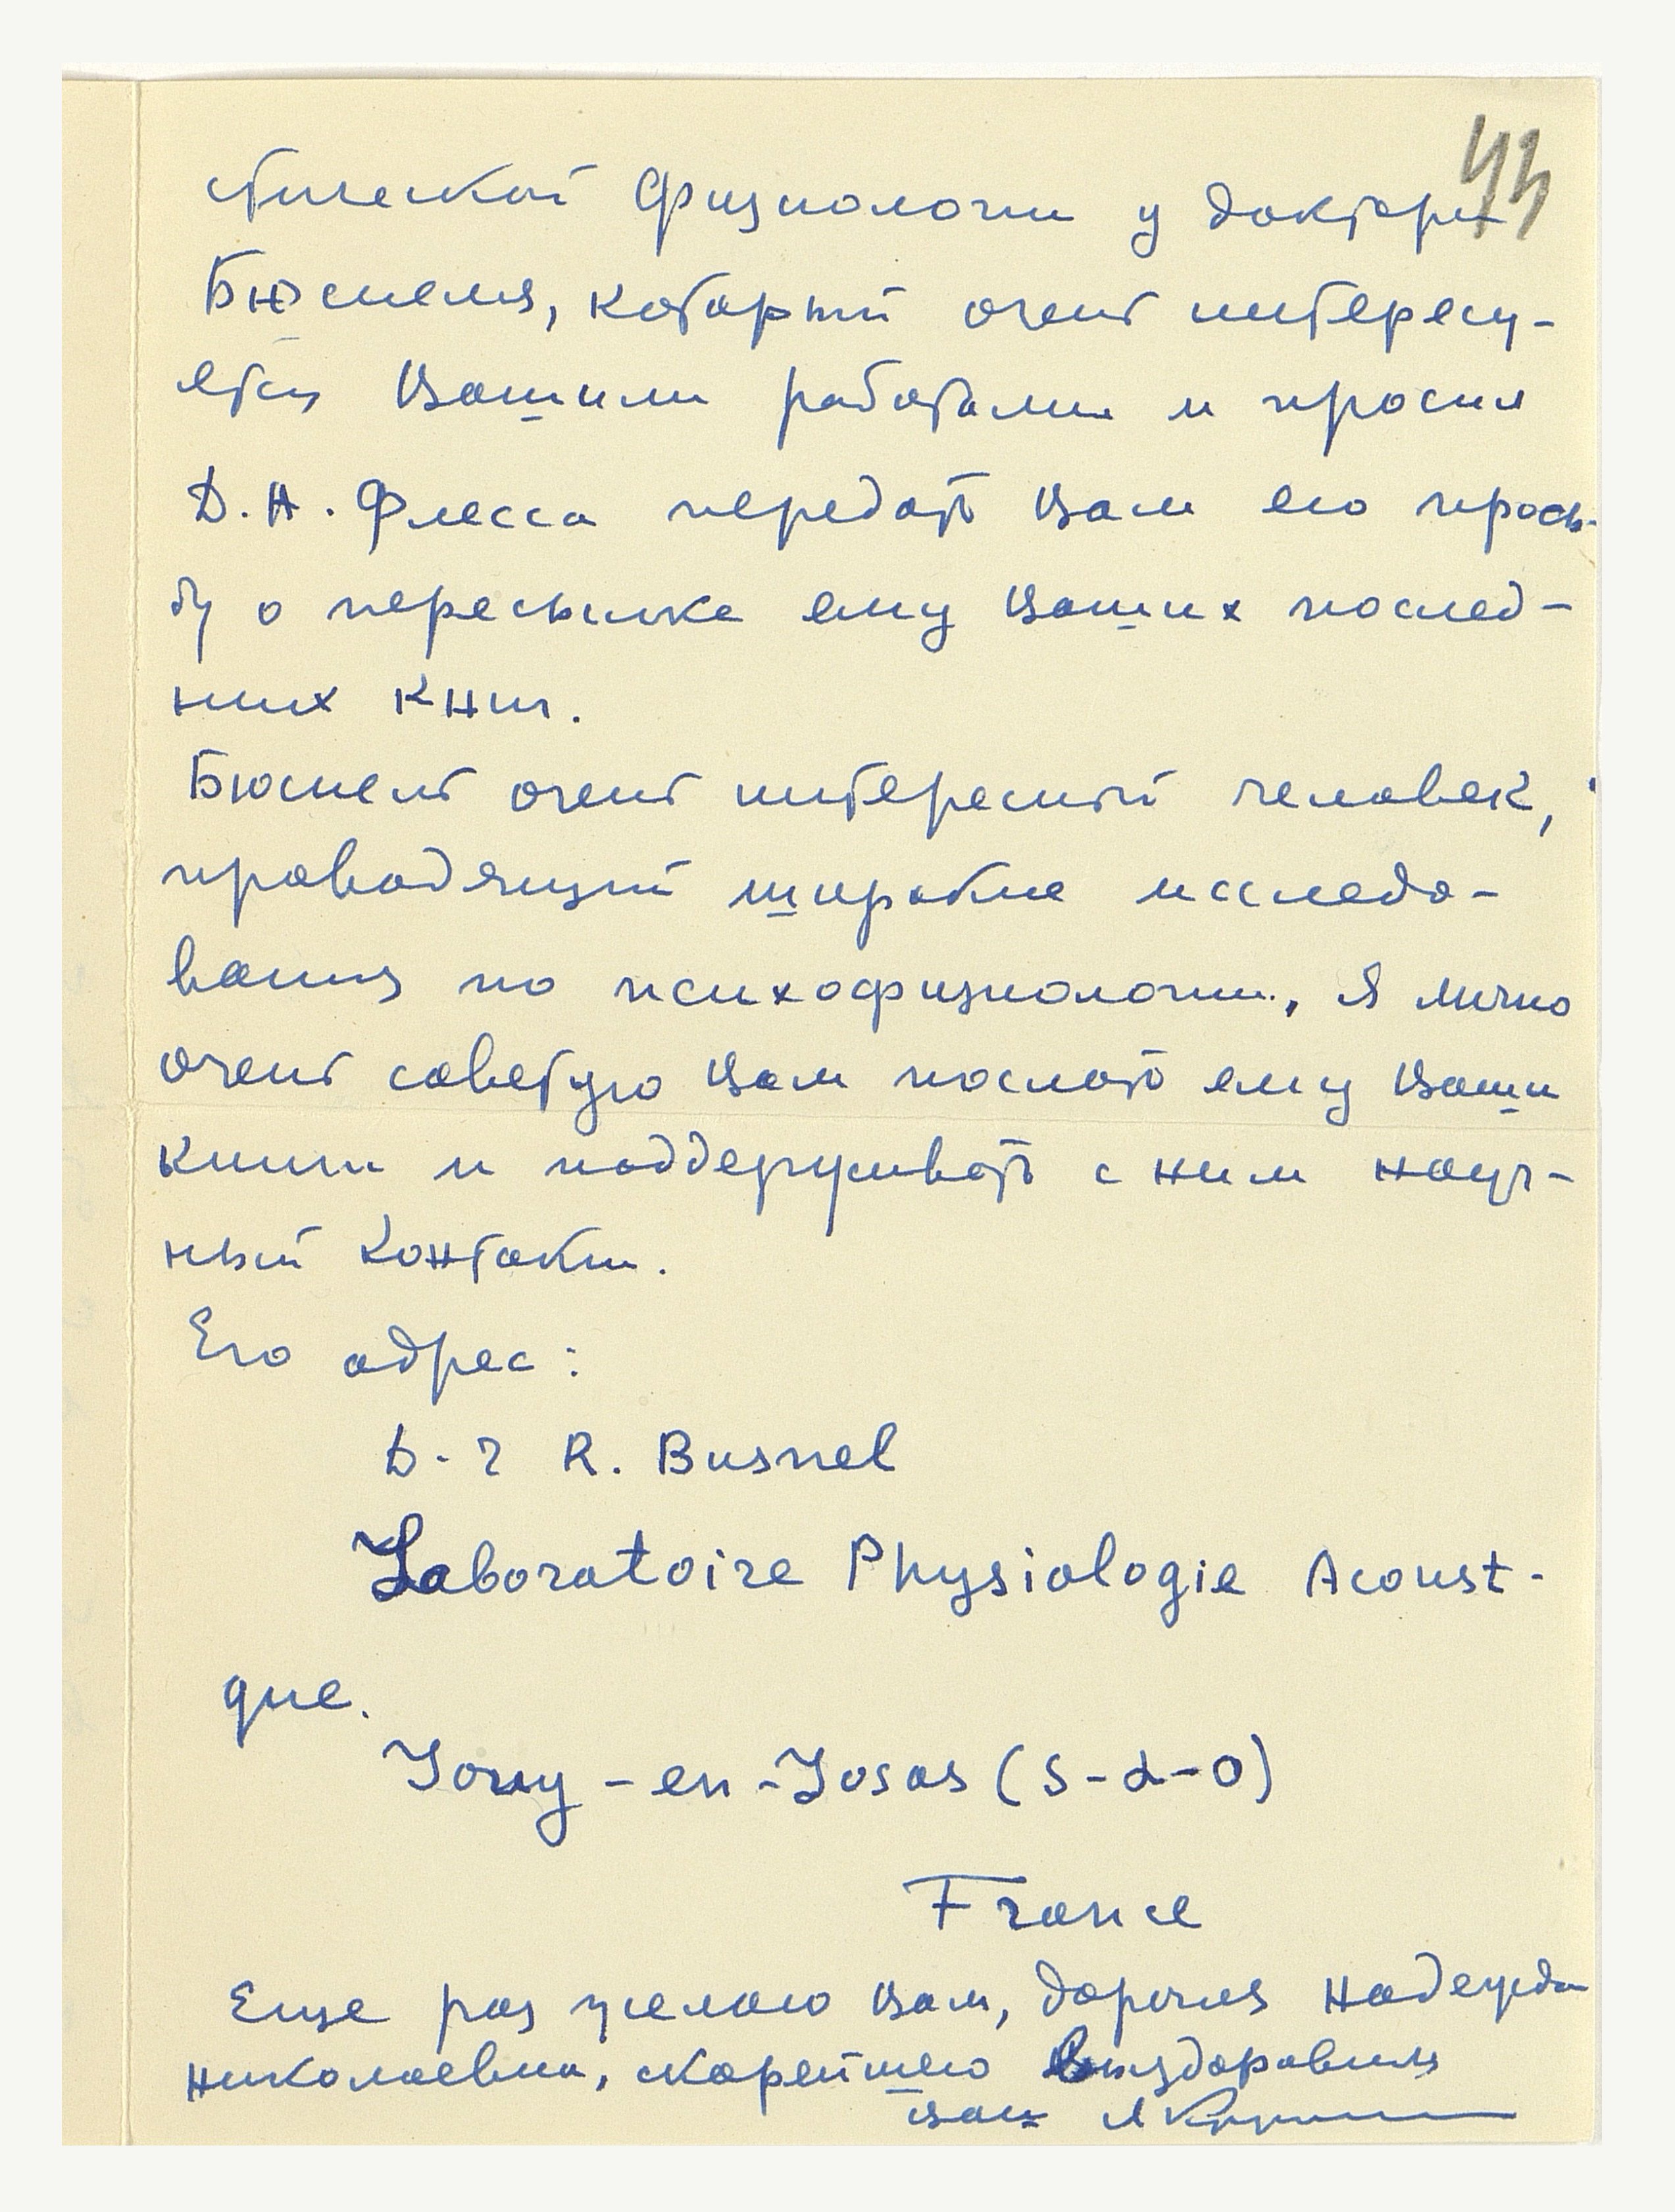 43
стической физиологии у доктора
Бюснеля, который очень интересу-
ется Вашими работами и просил
Д.А. Флесса передать Вам его прось-
бу о пересылке ему Ваших послед-
них книг.
Бюснель очень интересный человек,
проводящий широкие исследо-
вания по психофизиологии, я лично
очень советую Вам послать ему Ваши
книги и поддерживать с ним науч-
ный контакт.
Его адрес:
D-r R. Busnel
Laboratoire Physiologie Acoust-
que.
Jouy-en-Josas (S-d-O)
France
Еще раз желаю Вам, дорогая Надежда
Николаевна, скорейшего выздоровления
Ваш